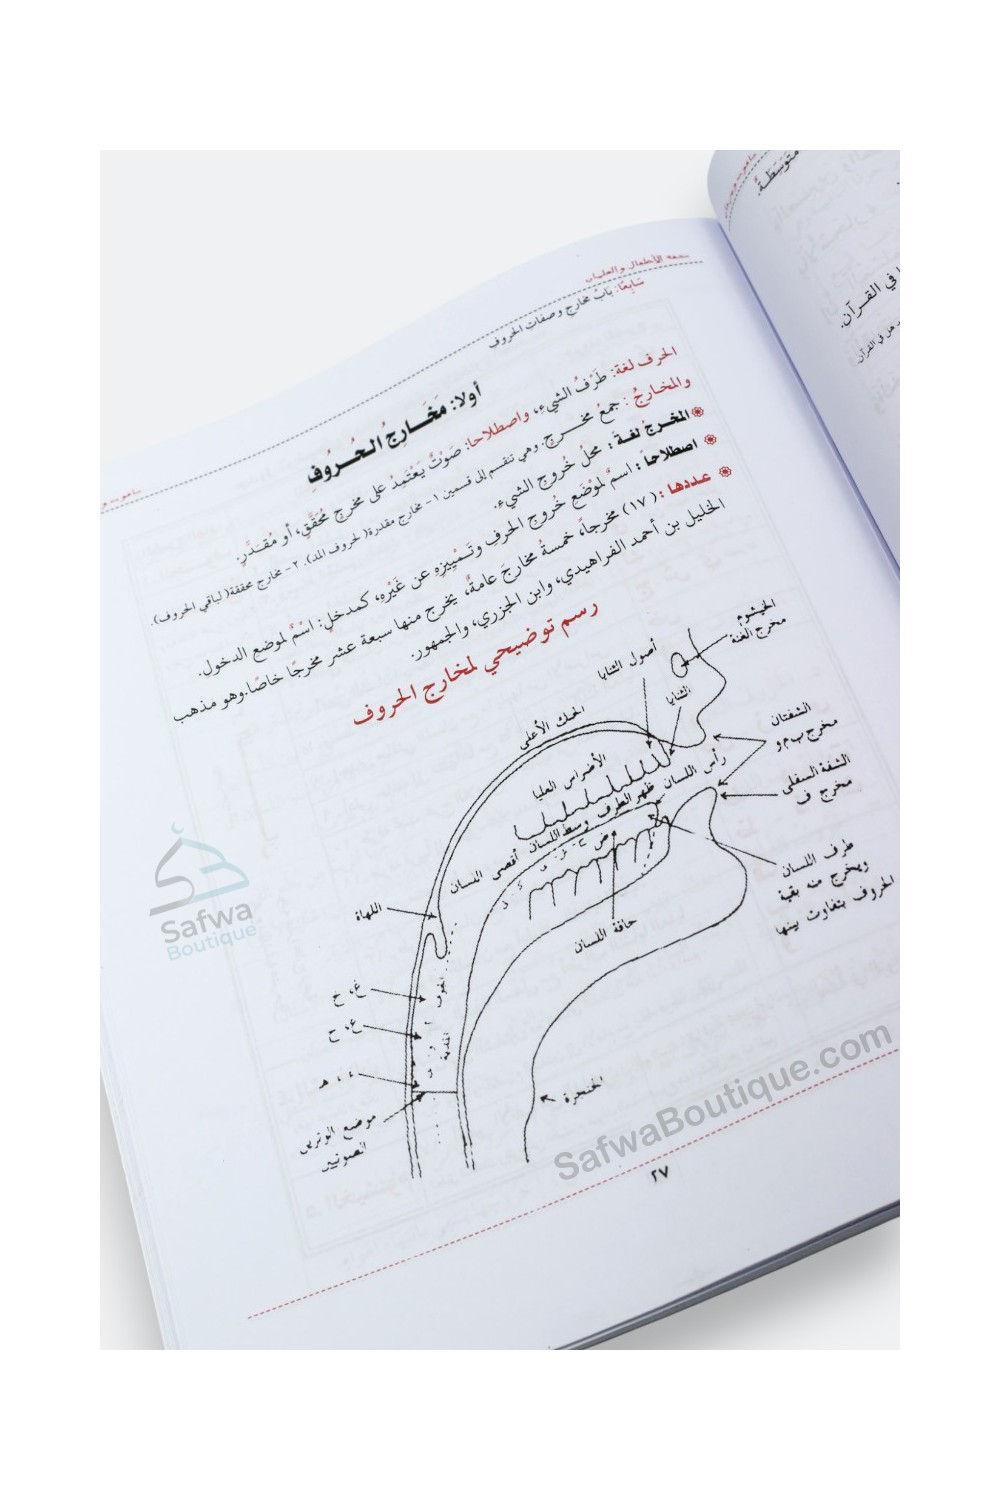 تحفة الأطفال والغلمان
سَابِعًا: بَابُ مخارج وصفات الحروف
أولا: مَخَـارِجُ الـحُـرُوُفِ
الحرف لغة: طَرْفُ الشيءِ، واصطلاحا: صَوْتٌ يَعْتَمِدُ على مخرجٍ مُحَقَّقٍ، أو مُقَـدَّرٍ.
والمخارجُ: جمعُ مخـرجٍ. وهي تنقسم إلى قسمين ١- مخارج مقدرة(لحروف المد). ٢- مخارج محققة(لباقي الحروف).
المخرجُ لغةً: محلُ خُروجِ الشيءِ.
اصطلاحاً: اسمٌ لموْضَعِ خُروجِ الحرفِ وتَـمْيِيزِهِ عن غَيْرِهِ، كمدخلٍ: اسْمٌ لموضع الدخول.
عـددهـا: (١٧) مخرجاً، خمسةُ مخارجَ عامةٌ، يخرج منها سبعة عشر مخرجًا خاصًا.وهو مذهب
الخليل بن أحمد الفراهيدي، وابن الجزري، والجمهور.
رسم توضيحي لمخارج الحروف
الخيشوم
مخرج الغنة
أصول الثنايا
الثنايا
الحنك الأعلى
الشفتان
مخرج ب م و
الأضراس العليا
رأس اللسان
الشفة السفلى
مخرج ف
ظهر الطرف
وسط اللسان
أقصى اللسان
ض
طرف اللسان
ويخرج منه بقية
الحروف بتفاوت بينها
اللهاة
حافة اللسان
غ، خ
ع، ح
ء، هـ
موضع الوترين
الصوتيين
الحنجرة
٢٧
متَوَسِّطَةٌ.
في القـرآن.
Safwa
Boutique
SafwaBoutique.com